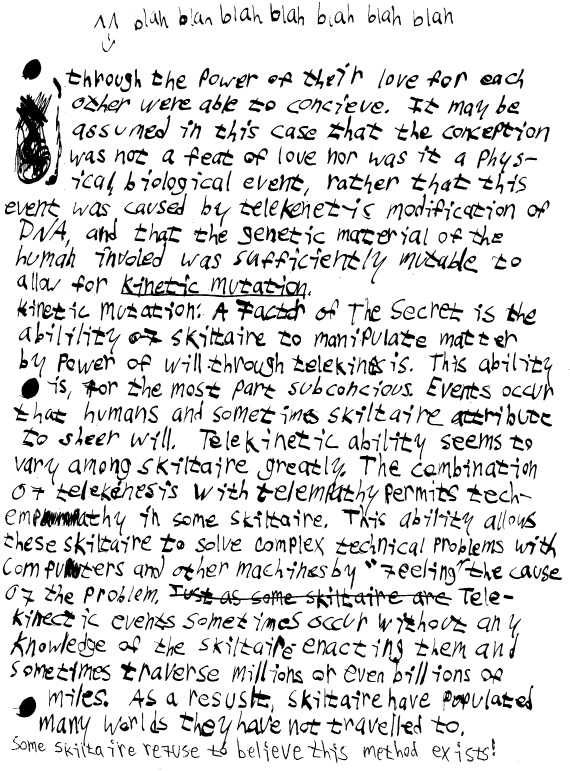 blah blah blah blah blah blah blah
through the power of their love for each
other were able to concieve. It may be
assumed in this case that the conception
was not a feat of love nor was it a phys-
ical, biological event, rather that this
event was caused by telekenetis modification of
DNA, and that the genetic material of the
human involed was sufficiently mutable to
allow for kinetic mutation.
kinetic mutation: A Factor of The Secret is the
abilility of skiltaire to manipulate matter
by power of will through telekinsis. This ability
is, for the most part subconcious. Events occur
that humans and sometims skiltaire attribute
to sheer will. Telekinetic ability seems to
vary among skiltaire greatly. The combination
of telekenesis with telempathy permits tech-
empathy in some skiltaire. This ability allows
these skiltaire to solve complex technical problems with
computers and other machines by "feeling" the cause
of the problem. Just as some skiltaire are Tele-
kinectic events sometimes occur without any
knowledge of the skiltaire enacting them and
sometimes traverse millions or even billions of
miles. As a resuslt, skiltaire have populated
many worlds they have not travelled to.
Some skiltaire refuse to believe this method exists!